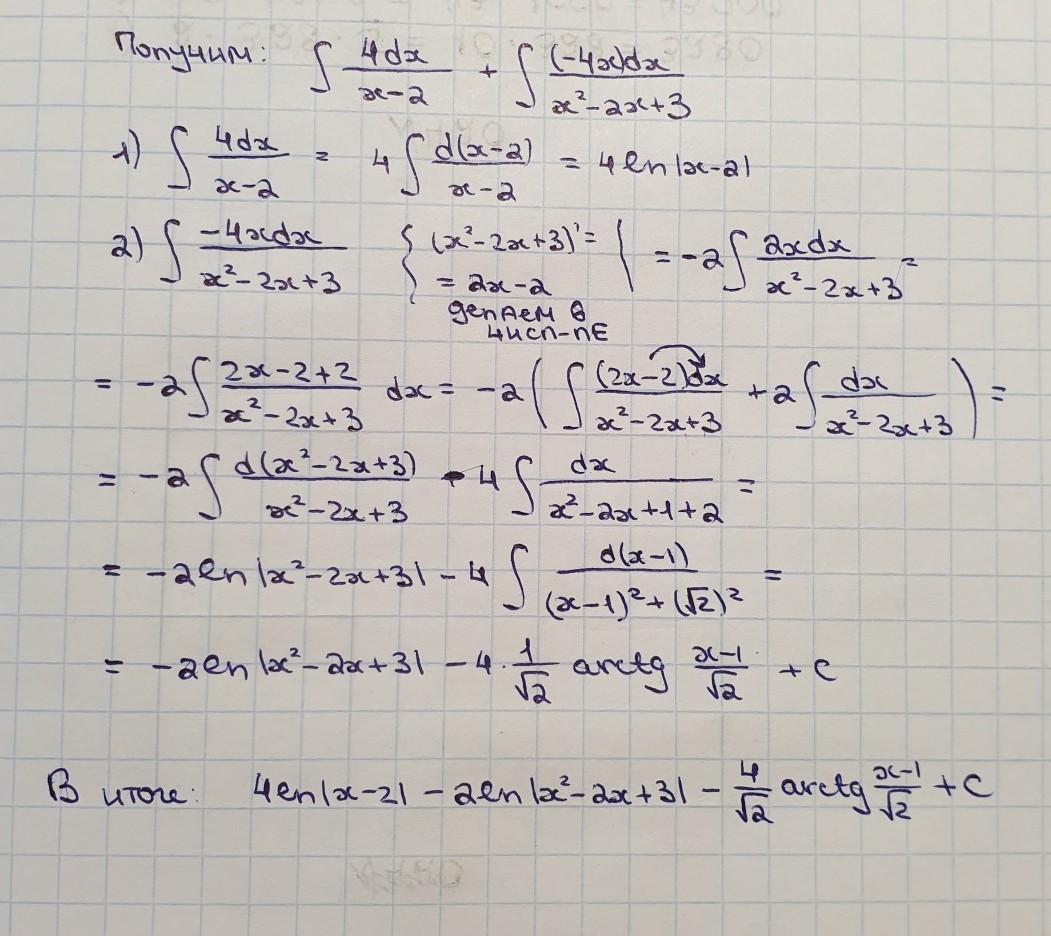 Получим: ∫ 4dx/(x-2) + ∫ (-4x)dx/(x²-2x+3)
1) ∫ 4dx/(x-2) = 4∫ d(x-2)/(x-2) = 4 ln|x-2|
2) ∫ -4xdx/(x²-2x+3) { (x²-2x+3)' = = 2x-2 делаем в числ-ле } = -2∫ 2xdx/(x²-2x+3) =
= -2∫ (2x-2+2)/(x²-2x+3) dx = -2( ∫ (2x-2)dx/(x²-2x+3) + 2∫ dx/(x²-2x+3) ) =
= -2∫ d(x²-2x+3)/(x²-2x+3) - 4∫ dx/(x²-2x+1+2) =
= -2ln|x²-2x+3| - 4∫ d(x-1)/((x-1)²+(√2)²) =
= -2ln|x²-2x+3| - 4·1/√2 arctg (x-1)/√2 + C
В итоге: 4ln|x-2| - 2ln|x²-2x+3| - 4/√2 arctg (x-1)/√2 + C